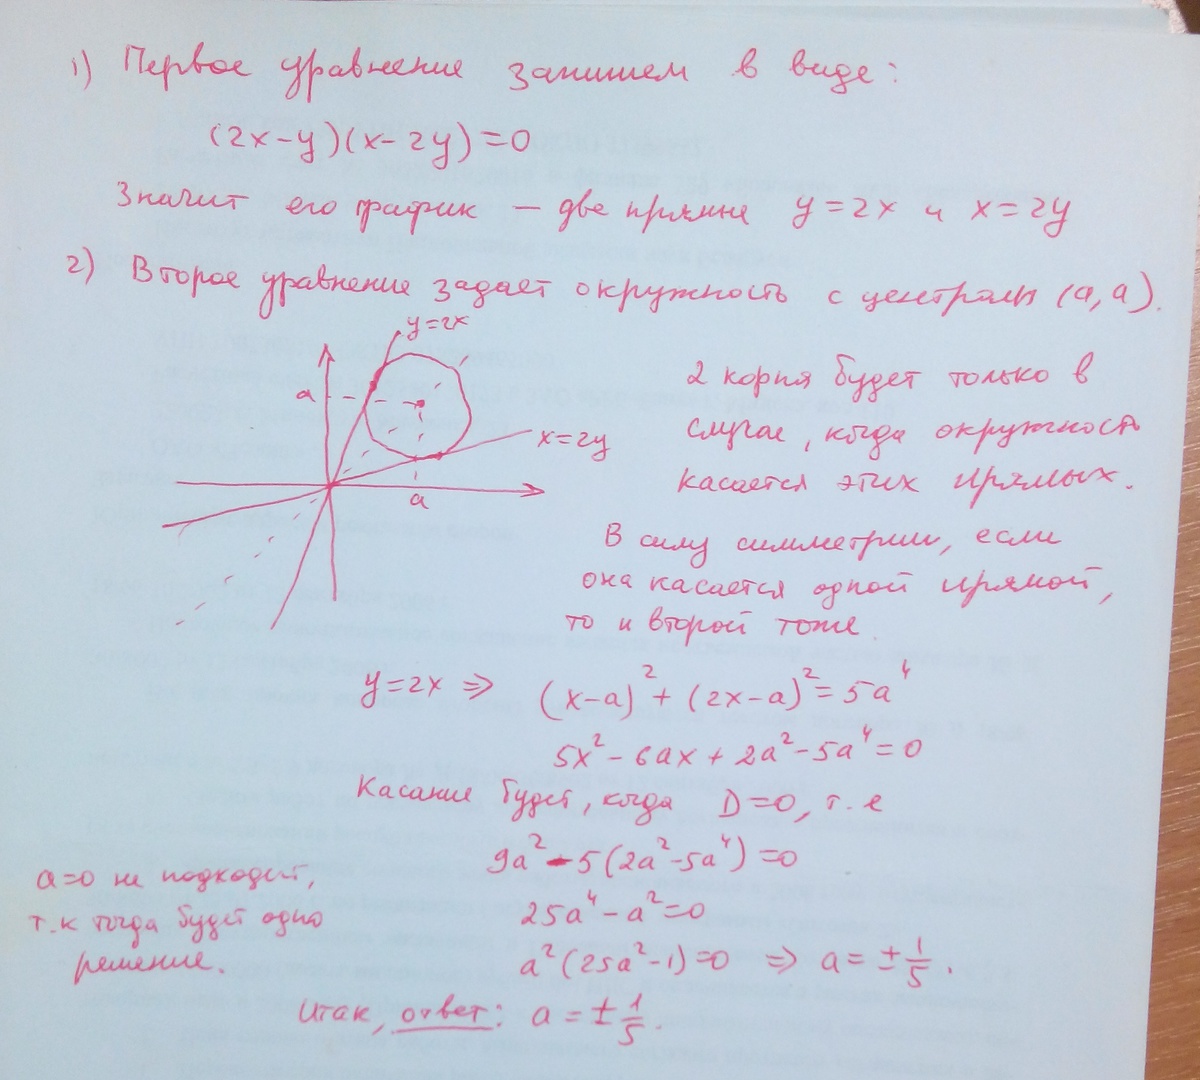 1) Первое уравнение запишем в виде:
(2x-y)(x-2y)=0
Значит его график — две прямые y=2x и x=2y
2) Второе уравнение задает окружность с центром (a,a).
y=2x
a
x=2y
a
2 корня будет только в
случае, когда окружность
касается этих прямых.
В силу симметрии, если
она касается одной прямой,
то и второй тоже.
y=2x ⇒ (x-a)²+(2x-a)²=5a⁴
5x²-6ax+2a²-5a⁴=0
Касание будет, когда D=0, т.е
9a²-5(2a²-5a⁴)=0
25a⁴-a²=0
a²(25a²-1)=0 ⇒ a=±1/5.
a=0 не подходит,
т.к тогда будет одно
решение.
Итак, ответ: a=±1/5.